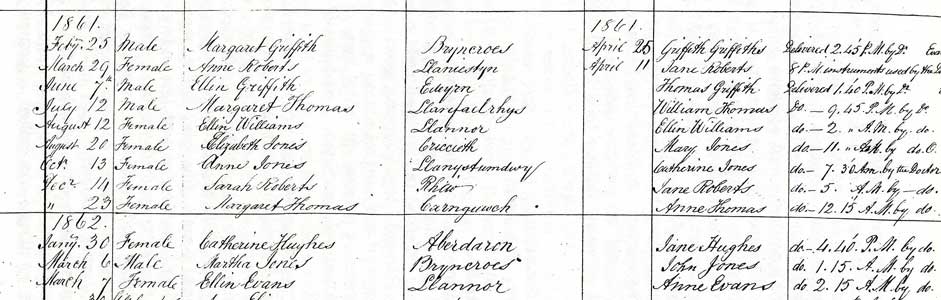 1861. 1861.
Feby. 25 Male Margaret Griffith Bryncroes April 25 Griffith Griffiths Delivered 2.45 P.M. by Dr.
March 29 Female Anne Roberts Llaniestyn April 11 Jane Roberts 8 P.M instruments used by
June 7th Male Ellin Griffith Edeyrn Thomas Griffith Delivered 1.40 P.M. by Dr.
July 12 Male Margaret Thomas Llanfaelrhys William Thomas Do. — 9.45. P.M. by D.
August 12 Female Ellin Williams Llannor Ellin Williams do. — 2. " A.M. by do.
August 20 Female Elizabeth Jones Criccieth Mary Jones do — 11. " by do.
Octr. 13 Female Anne Jones Llanystumdwy Catherine Jones do — 7.30 by the Doctor
Decr 14 Female Sarah Roberts Rhiw Jane Roberts do — 5. A.M. by — do.
" 23 Female Margaret Thomas Carnguwch Anne Thomas do — 12.15 A.M. by do.
1862.
Jany. 30 Female Catherine Hughes Aberdaron Jane Hughes do — 4.40. P.M. by do.
March 6 Male Martha Jones Bryncroes John Jones do. 1.15. A.M. by do.
March 7 Female Ellin Evans Llannor Anne Evans do 2.15 A.M. by do.